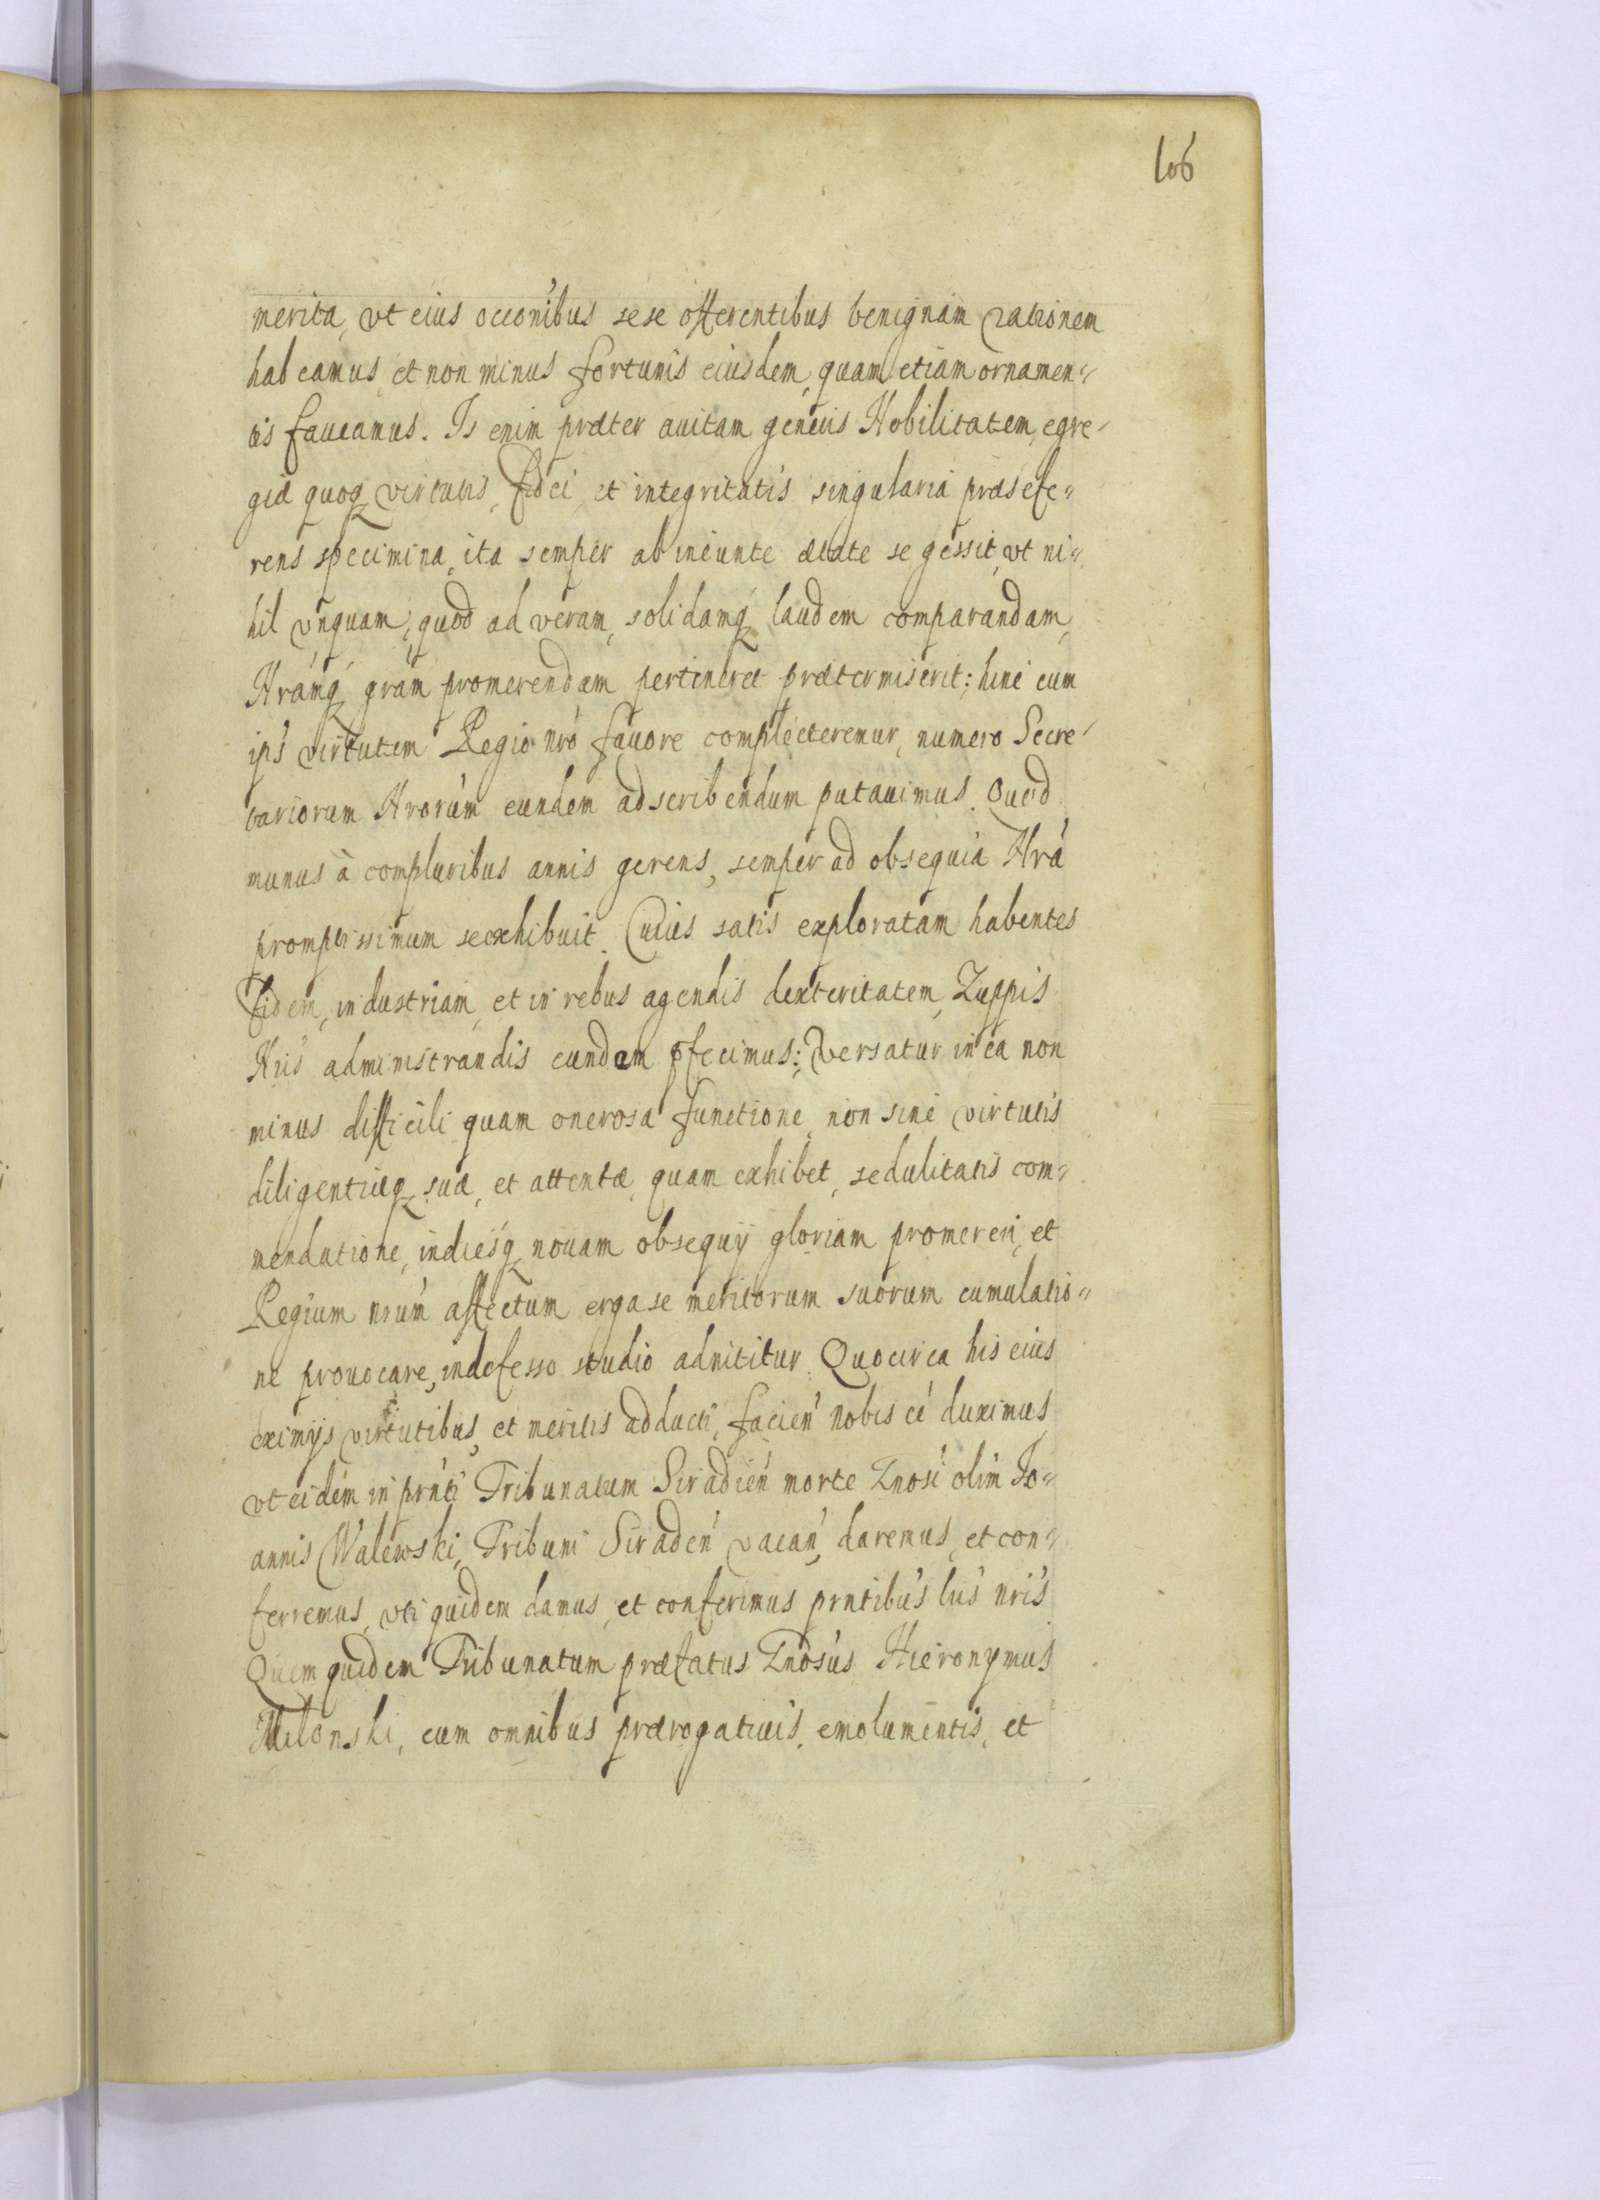 106
merita, vt eius occonibus sese offerentibus benignam rationem
habeamus, et non minus fortunis eiusdem, quam etiam ornamen=
tis faueamus. Is enim præter auitam generis Nobilitatem, egre-
giæ quoq virtutis, fidei, et integritatis singularia præsefe=
rens specimina, ita semper ab ineunte ætate se gessit, vt ni=
hil vnquam, quod ad veram, solidamq laudem comparandam,
Nramq gram promerendam pertineret prætermiserit: hinc cum
ips virtutem Regio nro fauore complecteremur, numero Secre-
tariorum Nrorum eundem adscribendum putauimus. Quod
munus à compluribus annis gerens, semper ad obsequia Nra
promptissimum se exhibuit. Cuius satis exploratam habentes
fidem, industriam, et in rebus agendis dexteritatem, Zuppis
Nris administrandis eundem pfecimus: Versatur in ea non
minus difficili quam onerosa functione, non sine virtutis
diligentiæq suæ, et attentæ, quam exhibet, sedulitatis com=
mendatione, indiesq nouam obsequij gloriam promereri, et
Regium nrum affectum erga se meritorum suorum cumulatio=
ne prouocare, indefesso studio adnititur. Quocirca his eius
eximijs virtutibus, et meritis adducti, facien nobis ee duximus,
vt eidem in prnti Tribunatum Siradien morte Gnosi olim Io=
annis Walewski, Tribuni Siraden vacan, daremus, et con=
ferremus, vti quidem damus, et conferimus prntibus lris nris
Quem quidem Tribunatum præfatus Gnosus Hieronymus
cum omnibus prærogatiuis, emolumentis, et